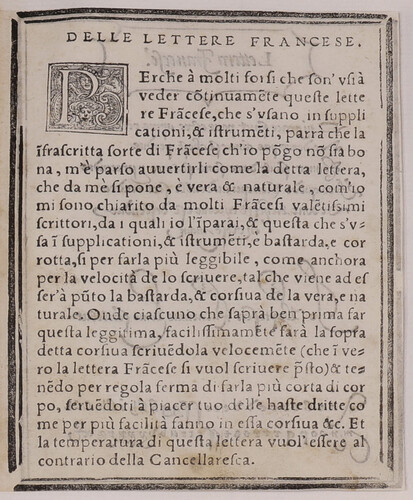 DELLE LETTERE FRANCESE.
PErche à molti forsi che son' vsi à
veder cõtinuamẽte queste lette
re Frãcese, che s'vsano in suppli
cationi, & istrumẽti, parrà che la
ĩfrascritta sorte di Frãcese ch'io põgo nõ sia bo
na, m'è parso auuertirli come la detta lettera,
che da mè si pone, è vera & naturale, com'io
mi sono chiarito da molti Frãcesi valẽtissimi
scrittori, da i quali io l'ĩparai, & questa che s'v-
sa ĩ supplicationi, & istrumẽti, è bastarda, e cor
rotta, si per farla più leggibile, come anchora
per la velocità de lo scriuere, tal che viene ad es
ser'à pũto la bastarda, & corsiua de la vera, e na
turale. Onde ciascuno che saprà ben' prima far
questa leggitima, facilissimamẽte farà la sopra
detta corsiua scriuẽdola velocemẽte (che ĩ ve-
ro la lettera Frãcese si vuol scriuere p̃sto) & te-
nẽdo per regola ferma di farla più corta di cor
po, seruẽdoti à piacer tuo delle haste dritte co
me per più facilità fanno in essa corsiua &c. Et
la temperatura di questa lettera vuol' essere al
contrario della Cancellaresca.